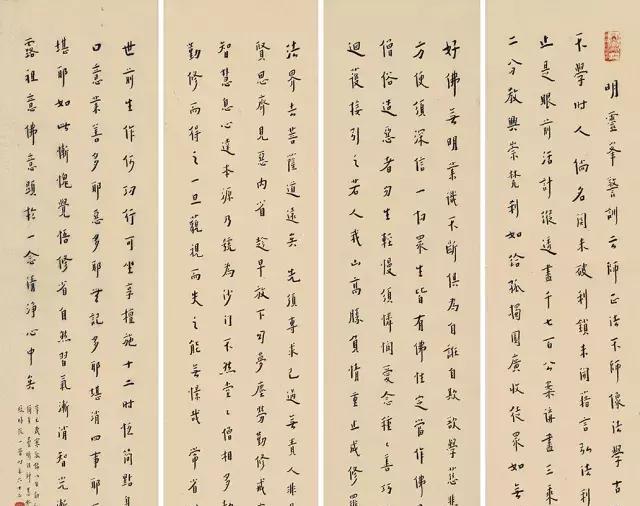 明靈峯警訓云師正法不師像法學古
不學时人倘名闻未破利鎖未開藉言弘法利
止是眼前活計縱透盡千七百公案講盡三乘
二分教興崇梵刹如给孤獨園廣收徒眾如無
好佛無明業識不斷俱為自誑自欺欲學菩
方便須深信一切眾生皆有佛性定當作佛
僧俗造惡者勿生輕慢須憐憫愛念種〻善巧
迴護接引之若人我山高勝負情重止成修羅
法界去菩薩道遠矣先須專求己過無責人非
賢思齊見惡内省趁早放下勿夢塵勞勤修戒
智慧息心達本源乃號為沙门不然堂〻僧相多
勤修而得之一旦藐視而失之能無懍哉常省
世前生作何功行可坐享檀施十二时恆簡點身
口意業善多耶惡多耶無記多耶堪消四事耶
堪耶如此慚愧覺悟修省自然習氣漸消智光漸
露祖意佛意顯於一念清淨心中矣